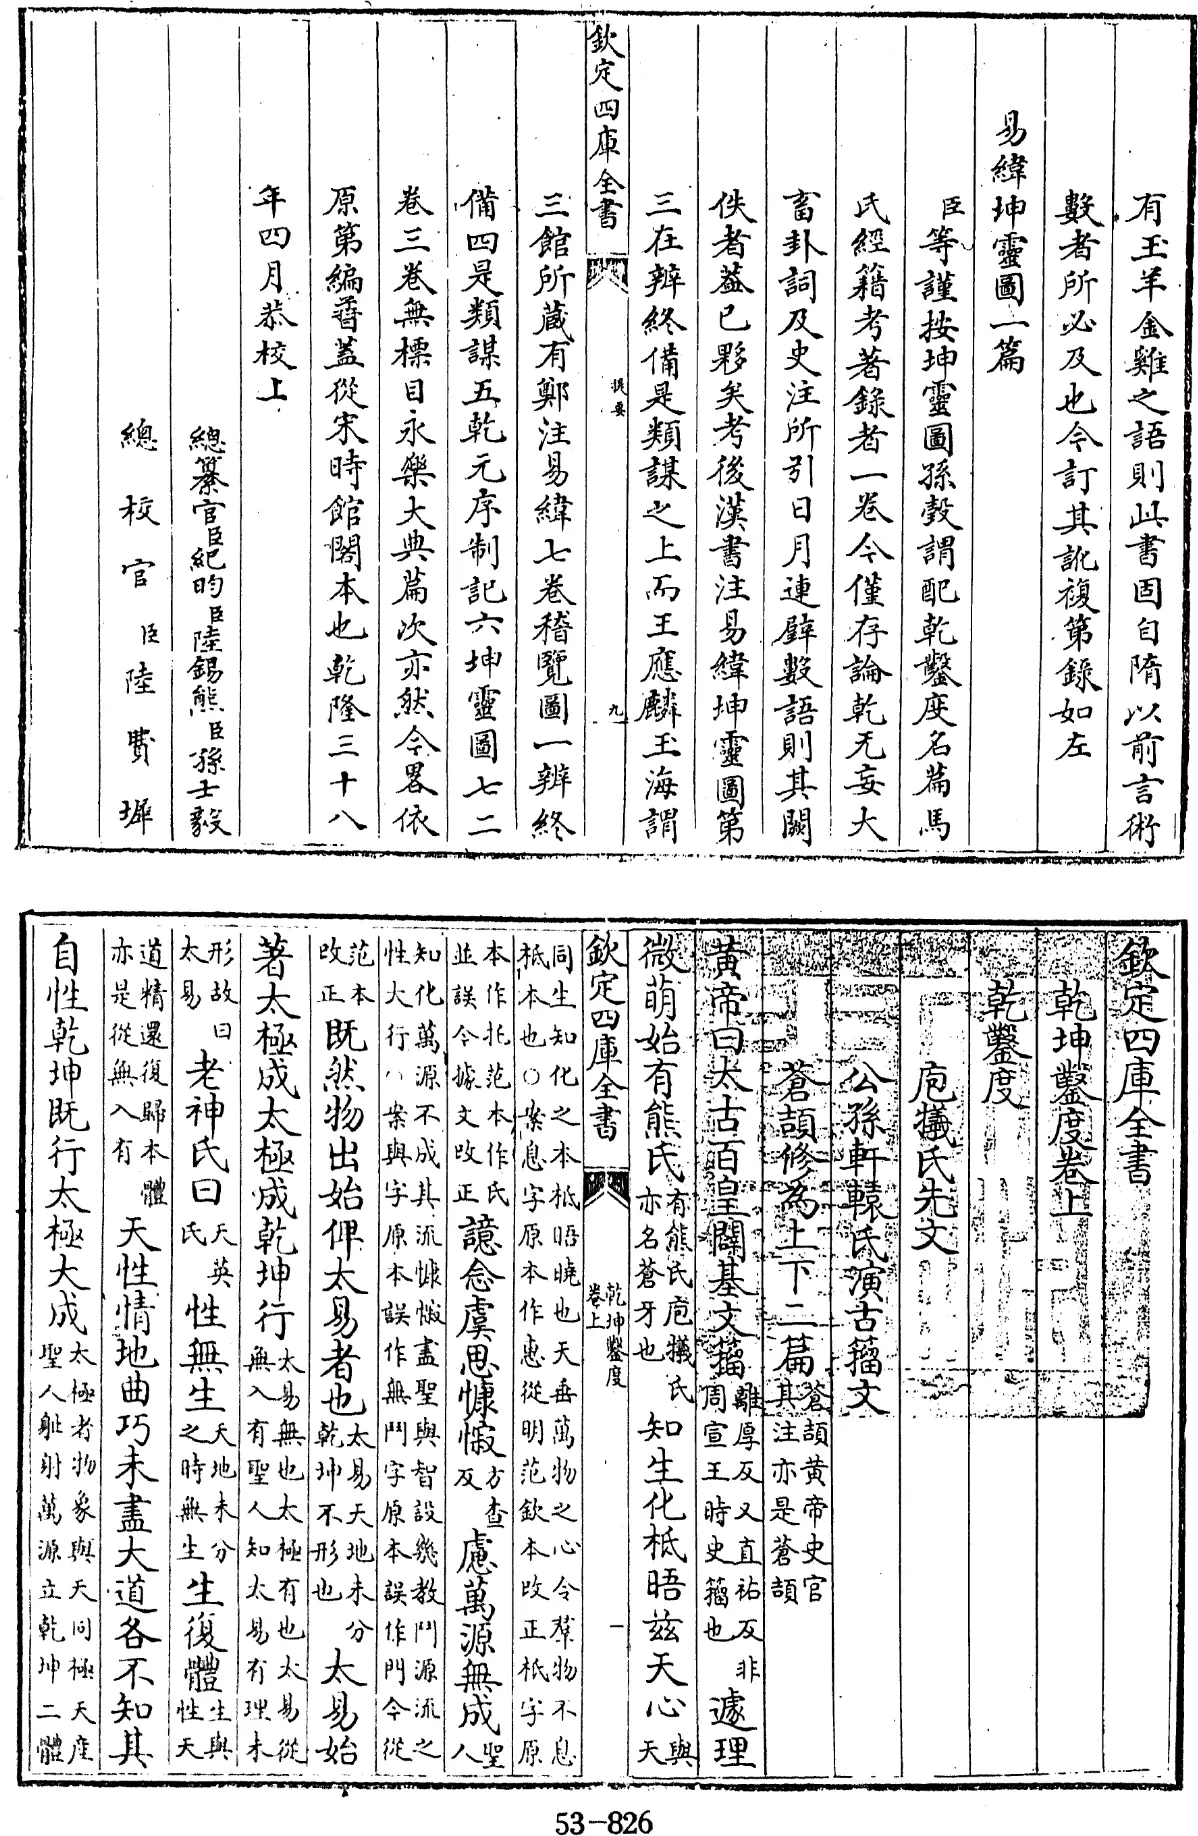 有玉羊金雞之語則此書固自隋以前言術
數者所必及也今訂其訛複第錄如左
易緯坤靈圖一篇
臣等謹按坤靈圖孫瑴謂配乾鑿度名篇馬
氏經籍考著錄者一卷今僅存論乾无妄大
畜卦詞及史注所引日月連璧數語則其闕
佚者葢已夥矣考後漢書注易緯坤靈圖第
三在辨終備是類謀之上而王應麟玉海謂
欽定四庫全書 提要 九
三館所藏有鄭注易緯七卷稽覽圖一辨終
備四是類謀五乾元序制記六坤靈圖七二
卷三卷無標目永樂大典篇次亦然今畧依
原第編次蓋從宋時館閣本也乾隆三十八
年四月恭校上
總纂官臣紀昀臣陸錫熊臣孫士毅
總校官臣陸費墀
欽定四庫全書
乾坤鑿度卷上
乾鑿度
庖犧氏先文
公孫軒轅氏演古籀文
蒼頡修為上下二篇蒼頡黃帝史官其注亦是蒼頡
黃帝曰太古百皇闢基文籀離厚反又直祐反非周宣王時史籀也遽理
微萌始有熊氏有熊氏庖犧氏亦名蒼牙也知生化柢晤茲天心與天
欽定四庫全書 乾坤鑿度卷上 一
同生知化之本柢晤曉也天垂萬物之心令羣物不息柢本也○案息字原本作惠從明范欽本改正柢字原
本作托范本作氐並誤今據文改正譩念虞思慷㥶方查反及慮萬源無成聖人
知化萬源不成其流慷㥶盡聖與智設幾教鬥源流之性大行○案與字原本誤作無鬥字原本誤作門今從
范本改正既然物出始俾太易者也太易天地未分乾坤不形也太易始
著太極成太極成乾坤行太易無也太極有也太易從無入有聖人知太易有理未
形故曰太易老神氏曰天英氏性無生天地未分之時無生生復體生與性天
道精還復歸本體亦是從無入有天性情地曲巧未盡大道各不知其
自性乾坤既行太極大成太極者物象與天同極天產聖人躰射萬源立乾坤二體
53-826